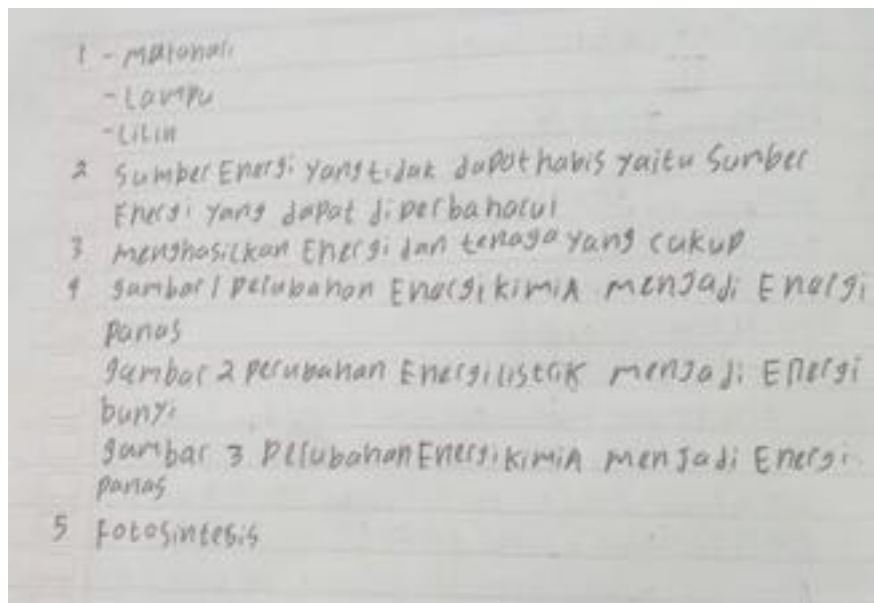 1 - Matahari
- Lampu
- Lilin
2 Sumber Energi yang tidak dapat habis yaitu Sumber
Energi yang dapat diperbaharui
3 menghasilkan Energi dan tenaga yang cukup
4 gambar 1 perubahan Energi kimia menjadi Energi
panas
gambar 2 perubahan Energi listrik menjadi Energi
bunyi
gambar 3 perubahan Energi kimia menjadi Energi
panas
5 fotosintesis